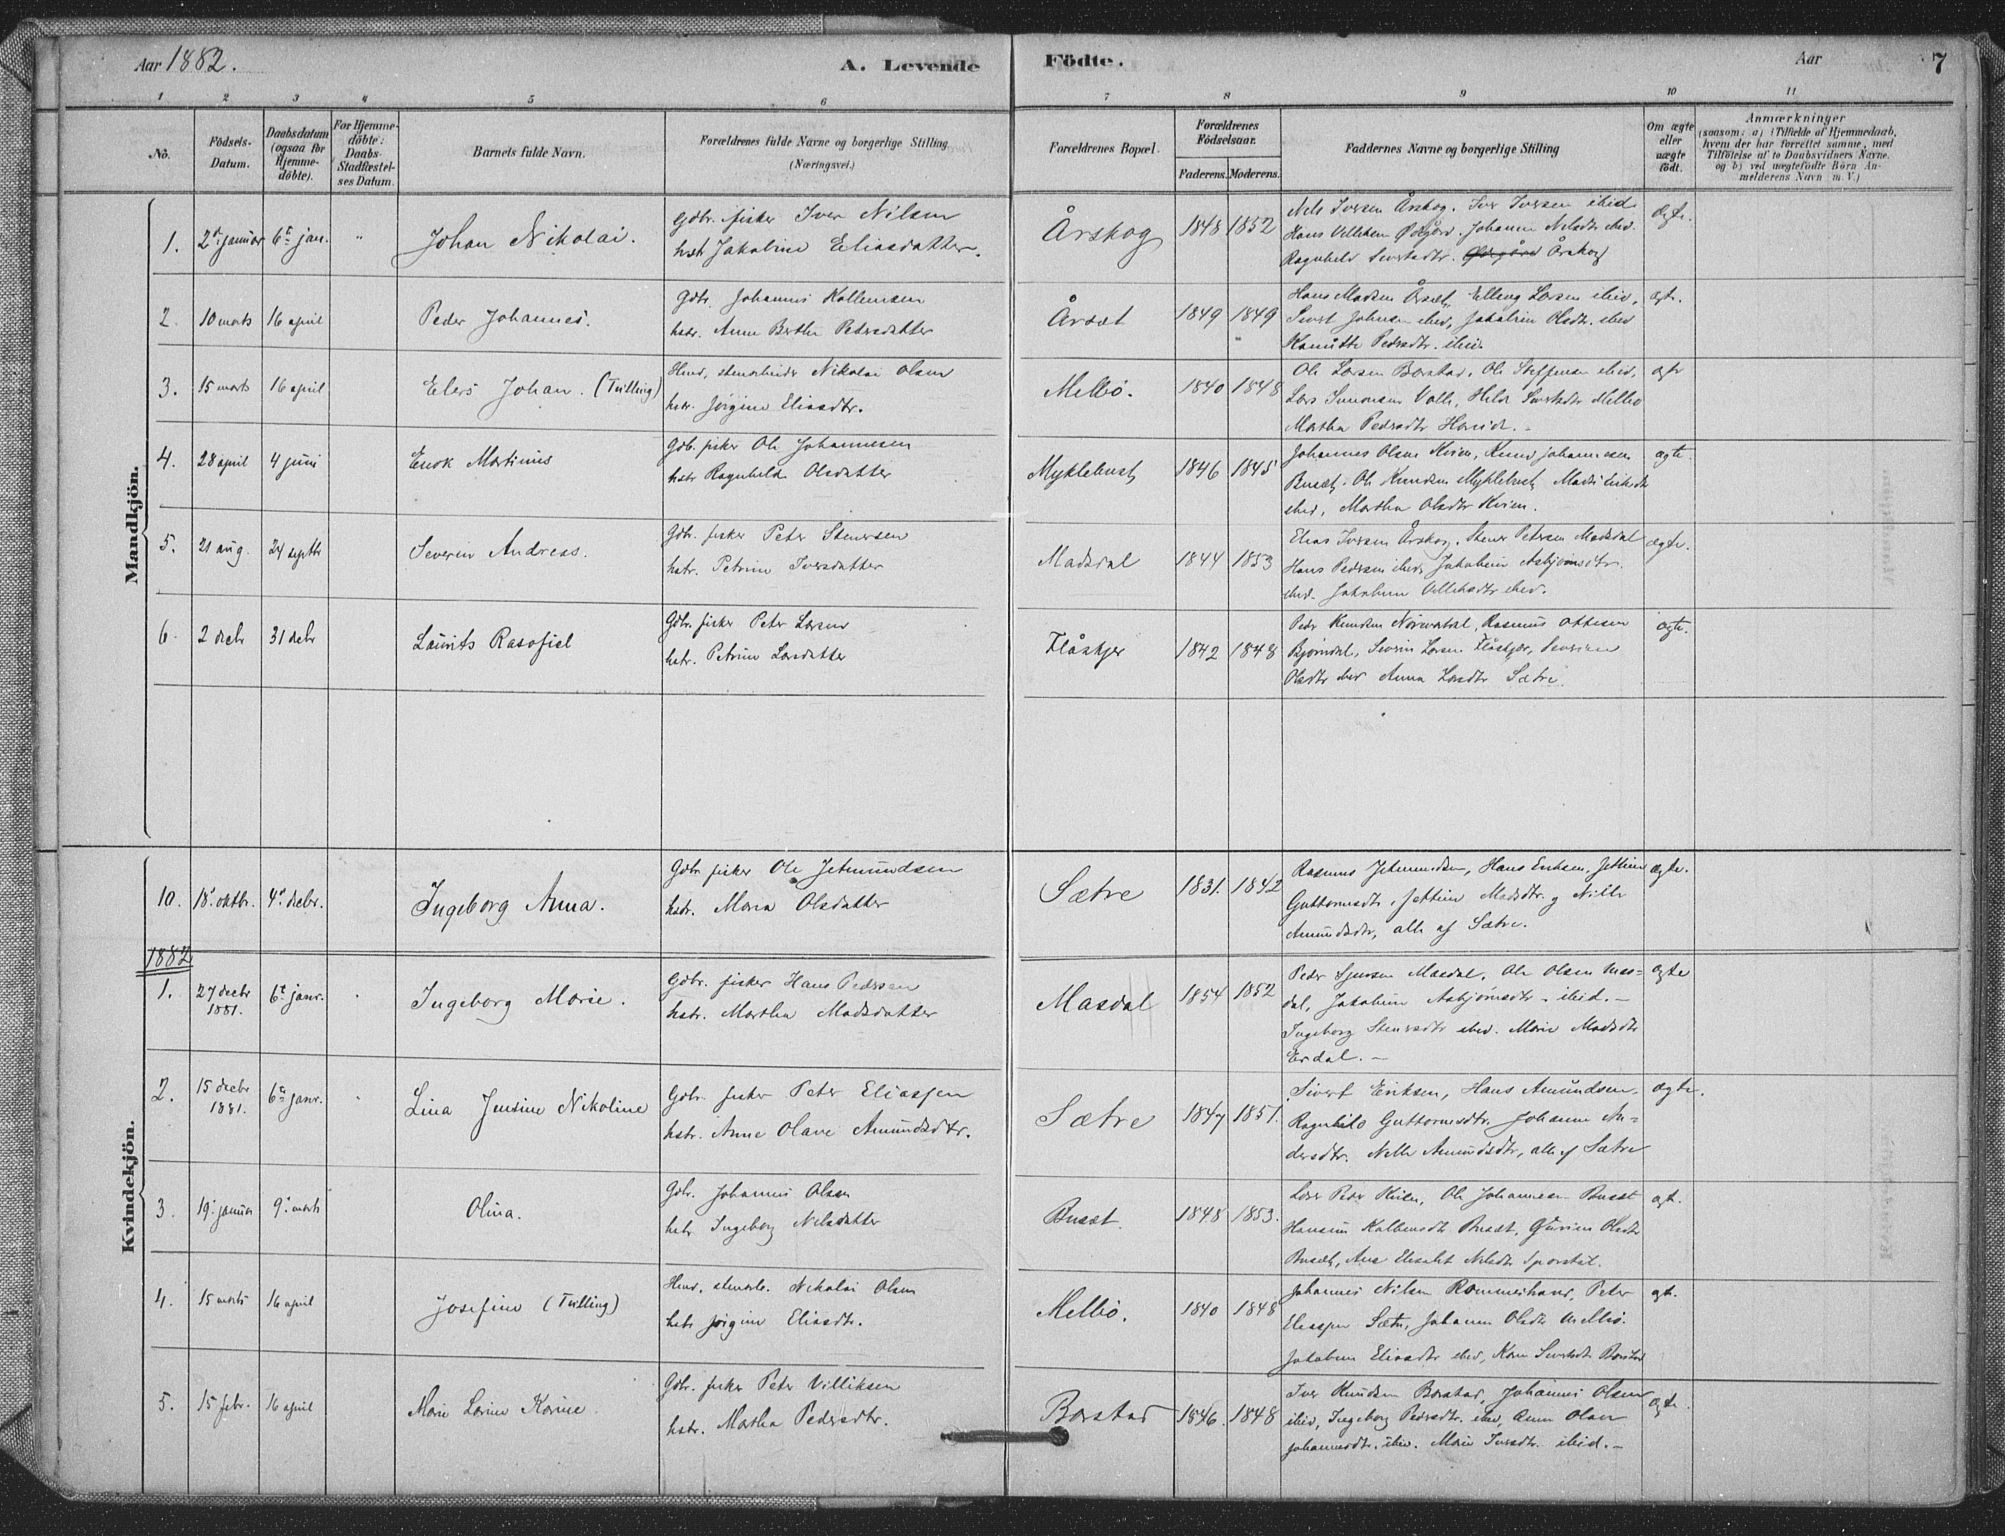 Aar 1882.
A. Levende
Födte.
Aar
7
1 2 3 4 5 6 7 8 9 10 11
No.
Födsels-Datum.
Daabsdatum (ogsaa for Hjemme-döbte).
For Hjemme-döbte: Daabs-Stadfæstel-ses Datum.
Barnets fulde Navn.
Forældrenes fulde Navne og borgerlige Stilling
(Næringsvei.)
Forældrenes Bopæl.
Forældrenes Födselsaar.
Faderens. Moderens.
Faddernes Navne og borgerlige Stilling
Om ægte eller uægte födt.
Anmærkninger
(saasom: a) i Tilfælde af Hjemmedaab,
hvem der har forrettet samme, med
Tilföielse af to Daabsvidners Navne.
og b) ved uægtefödte Börn An-
melderens Navn m. V.)
Mandkjön.
1. 2den januar 6te jan. " Johan Nikolai.
Gdbr. fisker Iver Nilsen
hstr Jakobine Eliasdatter.
Årskog 1848 1852
Nils Iversen Årskog. Iver Iversen ibid
Hans Johanne Nilsdtr ibid.
Ragnhild Sivertsdtr. Årskog
Ægte.
2. 10 marts 16 april Peder Johannes.
Gdbr. Johannes Kolbensen
hstr. Anne Berthe Pedersdatter
Årsæt 1849 1849
Hans Madsen Årsæt, Elling Larsen ibid,
Sivert Johnsen ibid, Jakobine Olsdtr. ibid
Pedersdtr. ibid.
ægt.
3. 15 marts 16 april Elers Johan. (Tvilling)
Hmd, stenarbeider Nikolai Olsen
hstr. Jørgine Eliasdtr.
Melbö. 1840 1848
Ole Larsen Borstad, Ole Steffensen ibid,
Lars Simonsen Valle, Sivertsdtr Melbö
Martha Pedersdtr Hovid.
ægte
4. 28 april 4 juni Enok Martinus
Gdb. fisker Ole Johannesen
hstr Ragnhilde Olsdatter
Myklebust 1846 1845
Johannes Olsen Kvien, Knud Johannesen
Busæt. Ole Knudsen Myklebust,
ibid, Martha Olsdtr Kvien.
ægte.
5. 21 aug. 24 septbr Severin Andreas.
Gdbr. fisker Peter Stenersen
hstr. Petrine Iversdatter
Madsdal 1844 1853
Elias Iversen Årskog, Stener Petersen Madsdal
Hans Pedersen ibid, Jakobine Asbjørnsdtr
ibid. Jakobine ibid.
ægte.
6. 2 decbr 31 decbr Laurits Rasofiel
Gdbr. fisker Peter Larsen
hstr. Petrine Larsdatter
Flåskjer 1842 1848
Peder Knudsen Rasmus Ottesen
Bjørndal, Severin Larsen Flåskjær,
Olsdtr ibid Anna Larsdtr Sætre.
ægte.
Kvindekjön.
10. 18. oktbr. 4. decbr. Ingeborg Anna.
Gdbr fisker Ole Jetmundsen
hstr. Maria Olsdatter
Sætre 1831. 1842
Rasmus Jetmundsen, Hans Eriksen,
Guttormsdtr, Madsdtr. og Nille
Amundsdtr, alle af Sætre.
ægte.
1882
1. 27 decbr 1881. 6te janr. " Ingeborg Marie.
Gdbr. fisker Hans Pedersen
hstr. Martha Madsdatter
Masdal 1854 1852
Peder Masdal, Ole Olsen Mas-
dal, Jakobine Asbjørnsdtr - ibid. -
Ingeborg Stenersdtr ibid. Marie Madsdtr
Erdal. -
ægte
2. 15 decbr 1881. 6te janr. " Lina Jensine Nikoline
Gdbr. fisker Peter Eliassen
hstr. Anne Olave Amundsdtr.
Sætre 1847 1851.
Sivert Eriksen, Hans Amundsen.
Ragnhild Guttormsdtr. Johanne An-
dersdtr. Nille Amundsdtr, alle af Sætre
ægte.
3. 19. januar 9. marts Olina.
Gdbr. Johannes Olsen
hstr Ingeborg Nilsdatter
Busæt. 1848 1853.
Peder Ole Johannesen Busæt
Kolbensdtr Busæt, Olsdtr
Busæt, Ane Elisabet Nilsdtr
ægt.
4. 15 marts 16 april Josefine (Tvilling)
Hmd, stenarb. Nikolai Olsen
hstr Jørgine Eliasdtr.
Melbö. 1840 1848
Johannes Nilsen Peter
Eliassen Sætre, Johanne Olsdtr Melbö.
Jakobine Eliasdtr ibid, Sivertsdtr Borstad
ægt.
5. 15 febr. 16 april Marie Lovise Karine
Gdbr. fisker Peter Villiksen
hstr. Martha Pedersdtr.
Borstad 1846. 1848
Iver Knudsen Borstad, Johannes Olsen
ibid, Ingeborg Pedersdtr. ibid, Olsen
Johannesdtr. ibid. Marie Iversdtr. ibid. -
ægte.